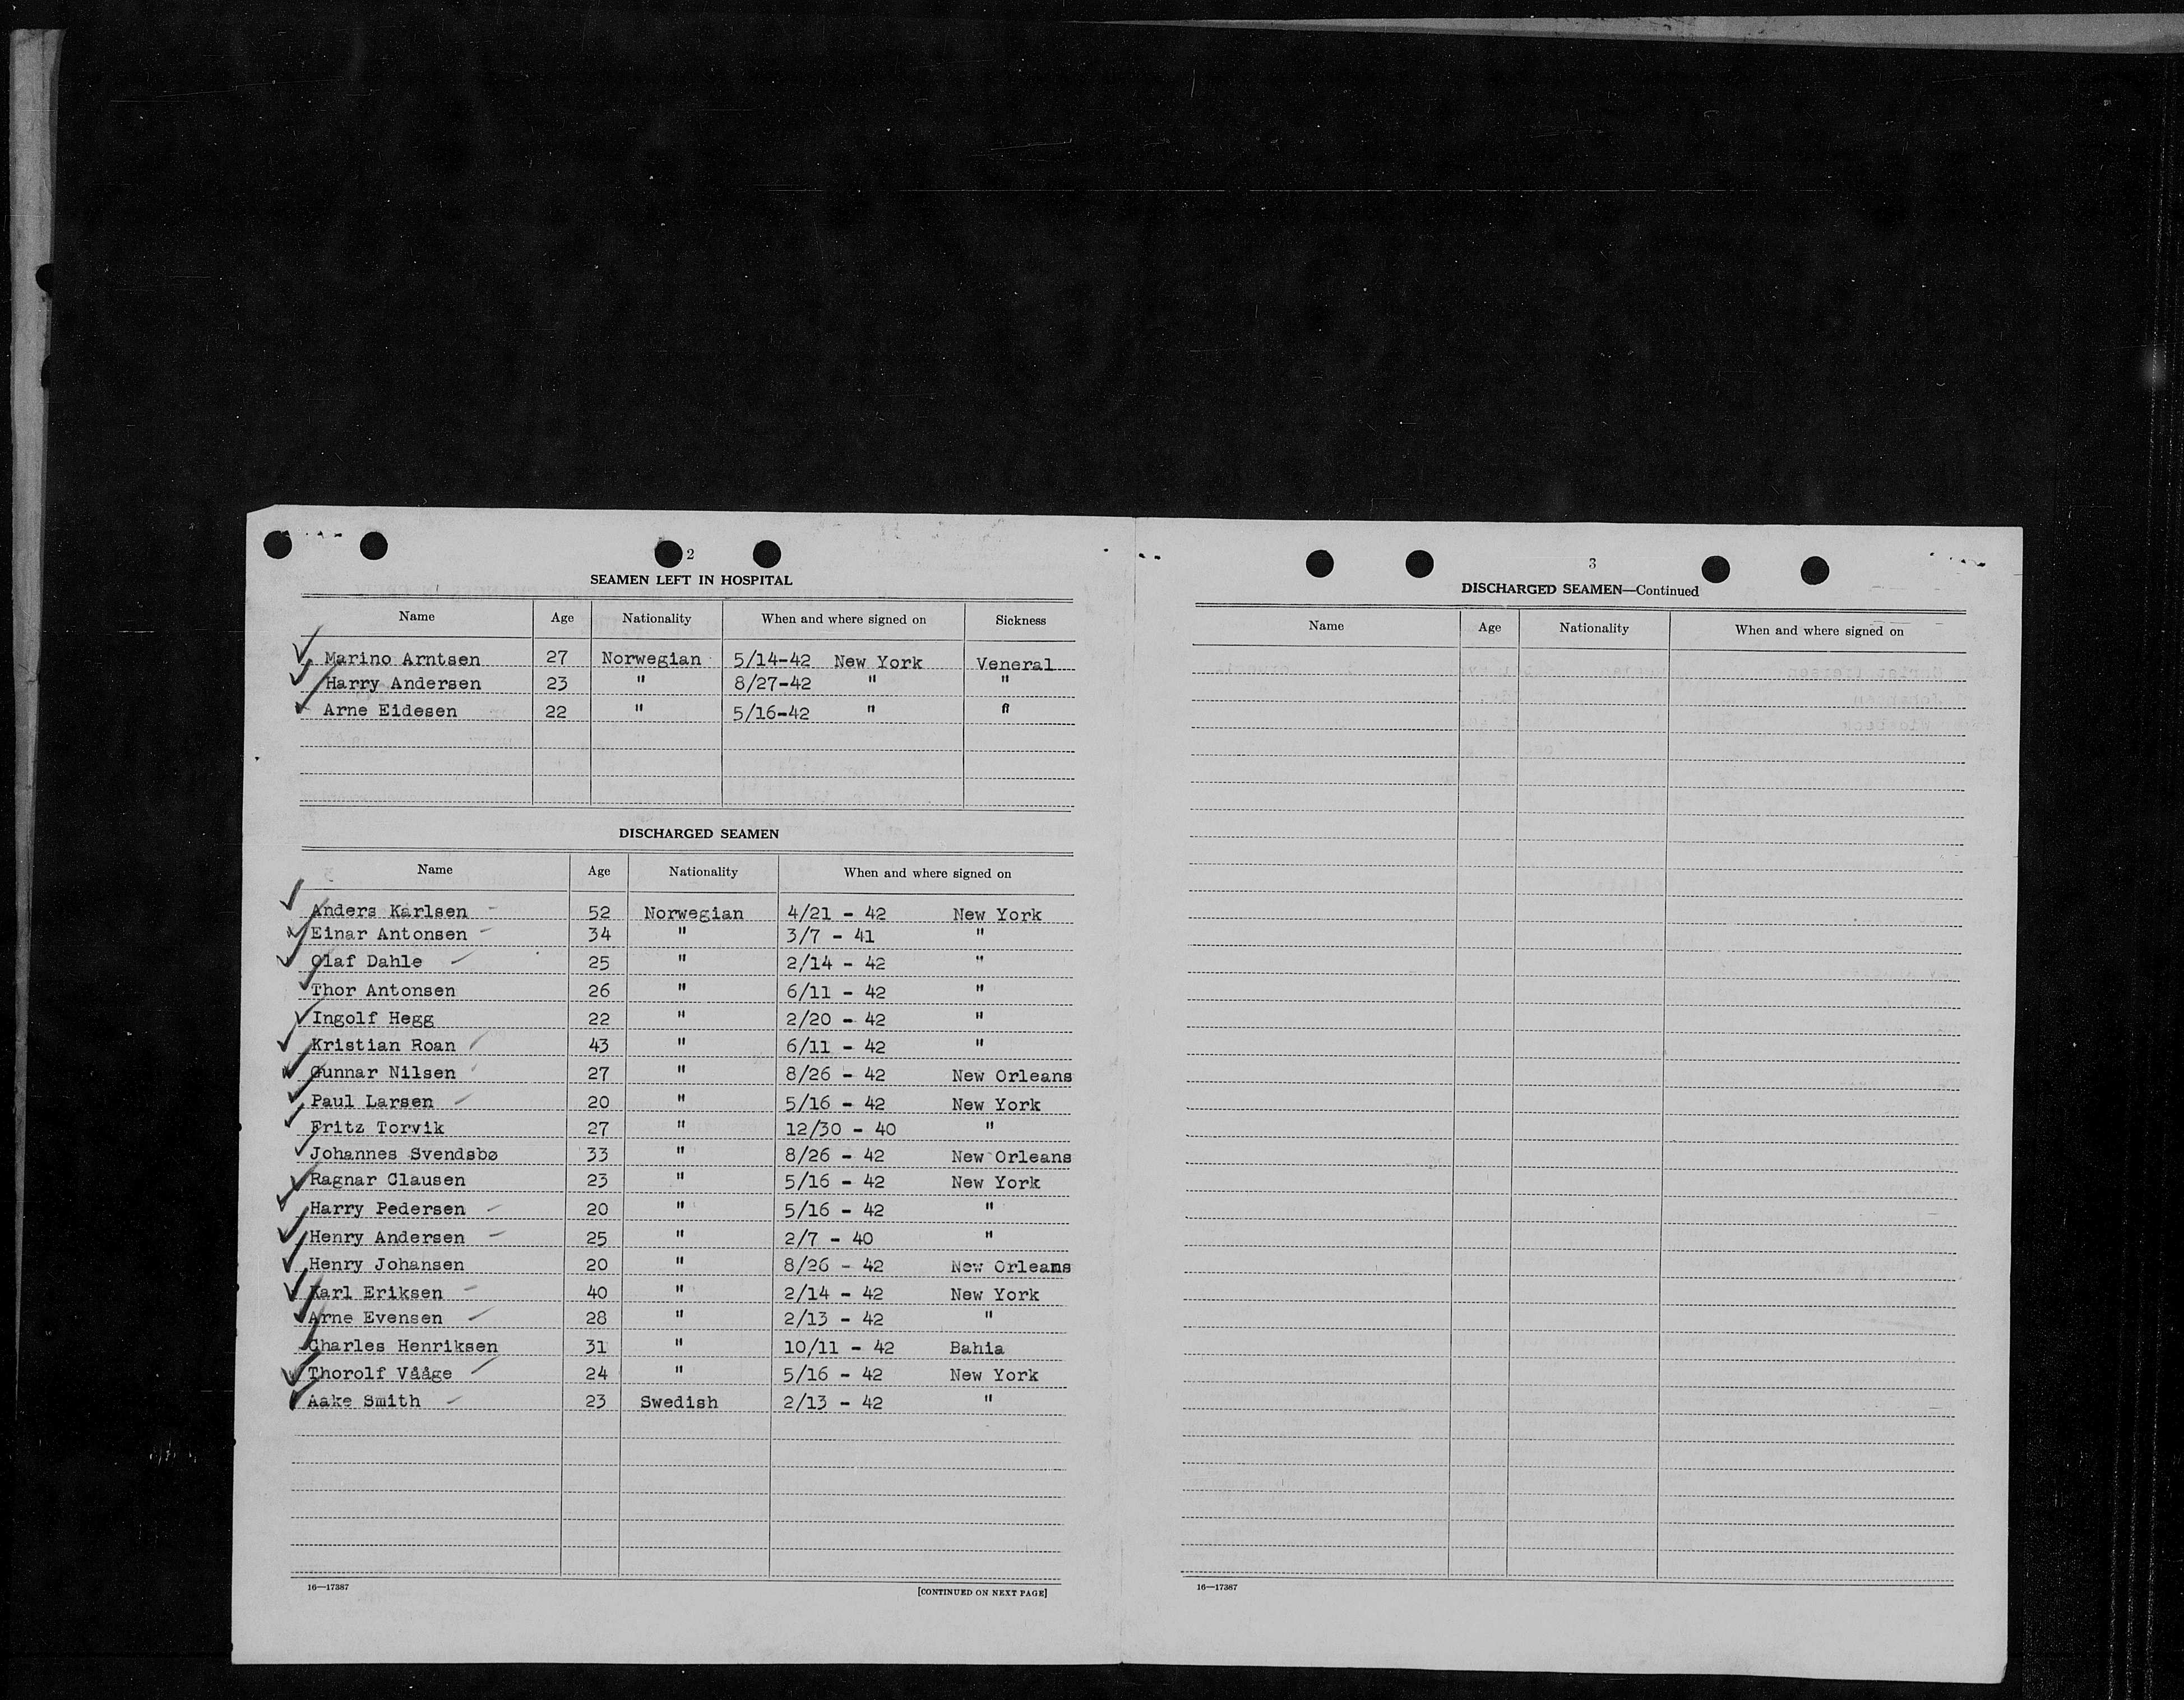 2
SEAMEN LEFT IN HOSPITAL
Name Age Nationality When and where signed on Sickness
Marino Arntsen 27 Norwegian 5/14-42 New York Veneral
Harry Andersen 23 " 8/27-42 " "
Arne Eidesen 22 " 5/16-42 " "
DISCHARGED SEAMEN
Name Age Nationality When and where signed on
Anders Karlsen 52 Norwegian 4/21 - 42 New York
Einar Antonsen 34 " 3/7 - 41 "
Olaf Dahle 25 " 2/14 - 42 "
Thor Antonsen 26 " 6/11 - 42 "
Ingolf Hegg 22 " 2/20 - 42 "
Kristian Roan 43 " 6/11 - 42 "
Gunnar Nilsen 27 " 8/26 - 42 New Orleans
Paul Larsen 20 " 5/16 - 42 New York
Fritz Torvik 27 " 12/30 - 40 "
Johannes Svendsbø 33 " 8/26 - 42 New Orleans
Ragnar Clausen 23 " 5/16 - 42 New York
Harry Pedersen 20 " 5/16 - 42 "
Henry Andersen 25 " 2/7 - 40 "
Henry Johansen 20 " 8/26 - 42 New Orleans
Karl Eriksen 40 " 2/14 - 42 New York
Arne Evensen 28 " 2/13 - 42 "
Charles Henriksen 31 " 10/11 - 42 Bahia
Thorolf Vååge 24 " 5/16 - 42 New York
Aake Smith 23 Swedish 2/13 - 42 "
16—17387 [CONTINUED ON NEXT PAGE]
3
DISCHARGED SEAMEN—Continued
Name Age Nationality When and where signed on
16—17387